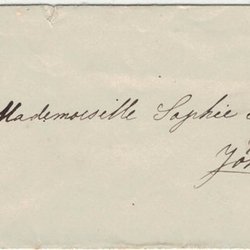 Mademoiselle Sophie